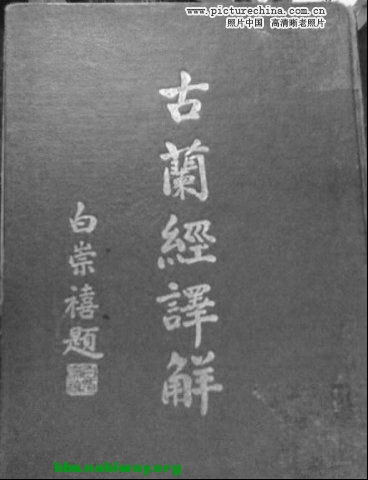 www.picturechina.com.cn
照片中国 高清晰老照片
古蘭經譯解
白崇禧題